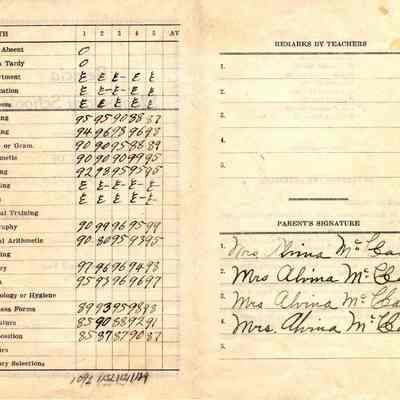 TH 1 2 3 4 5 AV
Absent 0
Tardy 0
rtment E E E- E E
cation E E- E- E E
ness E E E E E
ing 95 95 90 88 87
ing 94 96 98 96 98
or Gram. 90 90 95 88 89
metic 90 90 90 99 95
ing 92 98 95 95 95
ing E E- E- E- E
ng E E E E E
al Training
raphy 90 99 96 95 99
al Arithmetic 90 80 95 93 95
ing
ry 97 96 96 94 98
95 93 96 96 97
ology or Hygiene
ess Forms 89 93 95 98 98
ature 85 90 88 92 91
position 85 87 87 90 87
ics
ary Selections
REMARKS BY TEACHERS
1.
2.
3.
4.
5.
PARENT'S SIGNATURE
1. Mrs Alvina McCa
2. Mrs Alvina McCa
3. Mrs Alvina McCa
4. Mrs. Alvina McCa
5.